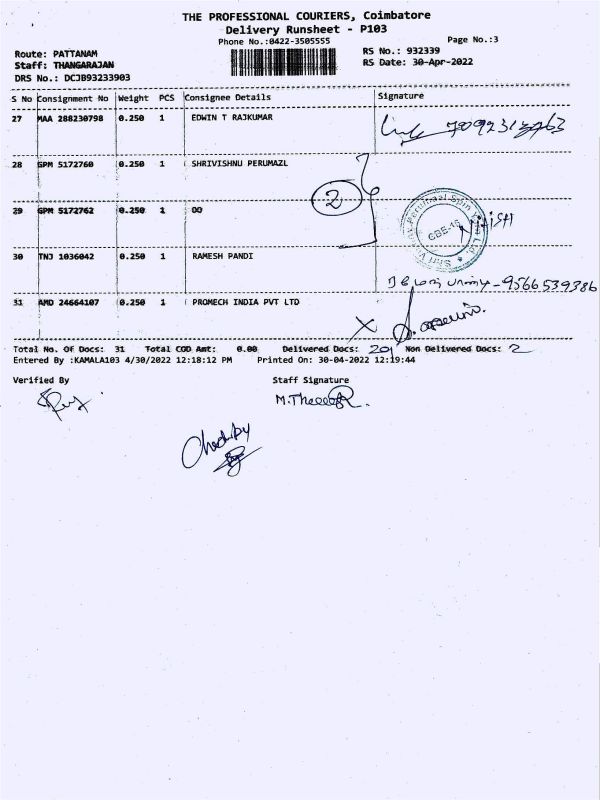 THE PROFESSIONAL COURIERS, Coimbatore
Delivery Runsheet - P103
Phone No.:0422-3505555
Page No.:3
Route: PATTANAM
RS No.: 932339
Staff: THANGARAJAN
RS Date: 30-Apr-2022
DRS No.: DCJB93233903
S No Consignment No Weight PCS Consignee Details Signature
27 MAA 288230798 0.250 1 EDWIN T RAJKUMAR
28 GPM 5172760 0.250 1 SHRIVISHNU PERUMAZL
2
29 GPM 5172762 0.250 1 OO
CBE-16
30 TNJ 1036042 0.250 1 RAMESH PANDI
9566539386
31 AMD 24664107 0.250 1 PROMECH INDIA PVT LTD
X
Total No. Of Docs: 31 Total COD Amt: 0.00 Delivered Docs: Non Delivered Docs: 2
Entered By :KAMALA103 4/30/2022 12:18:12 PM Printed On: 30-04-2022 12:19:44
Verified By Staff Signature